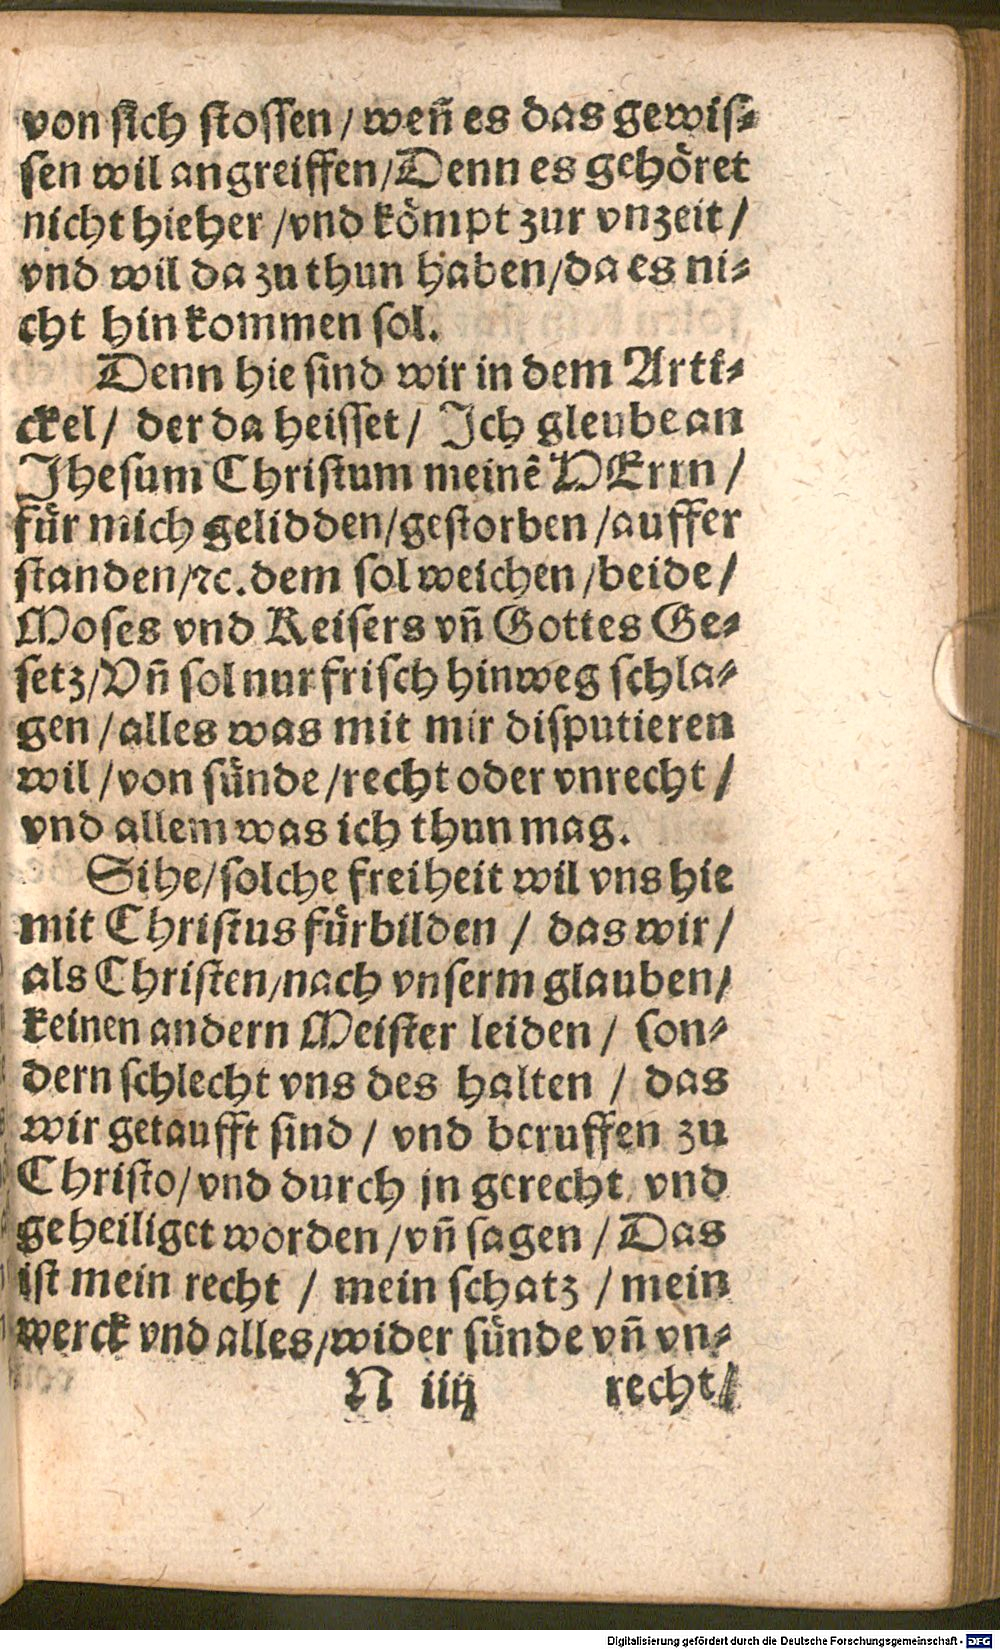 von sich stossen / weñ es das gewis⸗
sen wil angreiffen / Denn es gehoͤret
nicht hieher / vnd koͤmpt zur vnzeit /
vnd wil da zu thun haben / da es ni⸗
cht hin kommen sol.
Denn hie sind wir in dem Arti⸗
ckel / der da heisset / Ich gleube an
Jhesum Christum meinẽ HErrn /
fuͤr mich gelidden / gestorben / auffer
standen / ꝛc. dem sol weichen / beide /
Moses vnd Keisers vñ Gottes Ge⸗
setz / Vñ sol nur frisch hinweg schla⸗
gen / alles was mit mir disputieren
wil / von suͤnde / recht oder vnrecht /
vnd allem was ich thun mag.
Sihe / solche freiheit wil vns hie
mit Christus fuͤrbilden / das wir /
als Christen / nach vnserm glauben /
keinen andern Meister leiden / son⸗
dern schlecht vns des halten / das
wir getaufft sind / vnd beruffen zu
Christo / vnd durch jn gerecht vnd
geheiliget worden / vñ sagen / Das
ist mein recht / mein schatz / mein
werck vnd alles / wider suͤnde vñ vn⸗
N iiij recht /
Digitalisierung gefördert durch die Deutsche Forschungsgemeinschaft - DFG